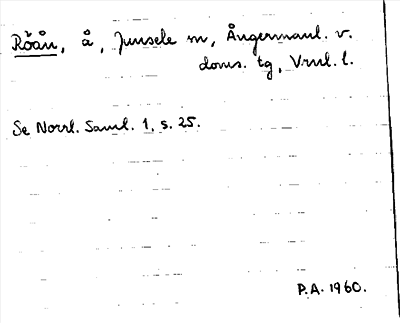 Röån, å, Junsele sn, Ångermanl. v.
doms. tg, Vrnl. l.
Se Norrl. Saml. 1, s. 25.
P.A. 1960.